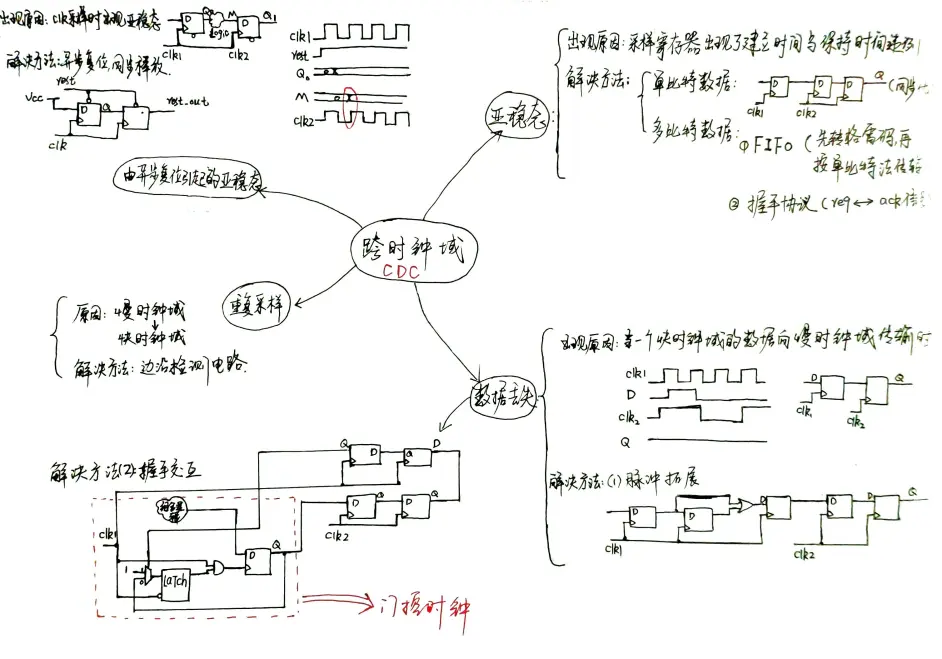 出现原因: clk采样时出现亚稳态
Q0
M
Q1
D
D
Logic
clk1
clk2
解决方法: 异步复位,同步释放.
rest
Vcc
D
Q
rest_out
clk
clk1
rest
Q0
M
clk2
由异步复位引起的亚稳态
跨时钟域
CDC
亚稳态
出现原因: 采样寄存器出现了建立时间与保持时间违例
解决方法:
单比特数据:
Q
clk1
clk2
多比特数据:
①FIFO (先转格雷码,再
按单比特法传输
② 握手协议 (req ↔ ack信
重复采样
原因: 慢时钟域
快时钟域
解决方法: 边沿检测电路.
数据丢失
出现原因: 当一个快时钟域的数据向慢时钟域传输时
clk1
D
clk2
Q
D
Q
clk1
clk2
解决方法: (1) 脉冲拓展
D
D
D
D
D
Q
clk1
clk2
解决方法(2): 握手交互
Q
D
Q
D
Q
Q
clk2
clk1
D
Q
1
0
LATCh
门控时钟